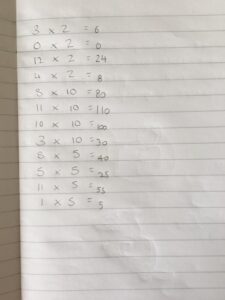 3 × 2 = 6
0 × 2 = 0
12 × 2 = 24
4 × 2 = 8
8 × 10 = 80
11 × 10 = 110
10 × 10 = 100
3 × 10 = 30
8 × 5 = 40
5 × 5 = 25
11 × 5 = 55
1 × 5 = 5